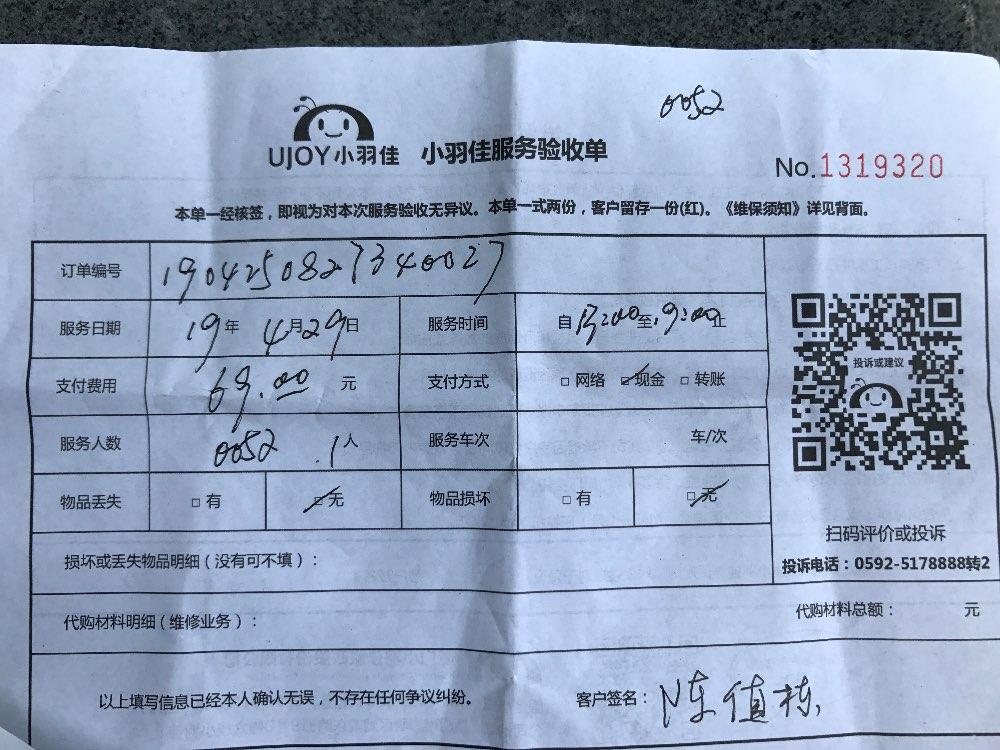 0052
UJOY小羽佳 小羽佳服务验收单
No.1319320
本单一经核签，即视为对本次服务验收无异议。本单一式两份，客户留存一份(红)。《维保须知》详见背面。
订单编号 1904250827340027
服务日期 19年 4月29日 服务时间 自 至19:00止
支付费用 69.00 元 支付方式 □网络 ☑现金 □转账
服务人数 0052 1人 服务车次 车/次
物品丢失 □有 ☑无 物品损坏 □有 ☑无
投诉或建议
扫码评价或投诉
投诉电话：0592-5178888转2
损坏或丢失物品明细（没有可不填）：
代购材料明细（维修业务）： 代购材料总额： 元
以上填写信息已经本人确认无误，不存在任何争议纠纷。 客户签名：陈值栋